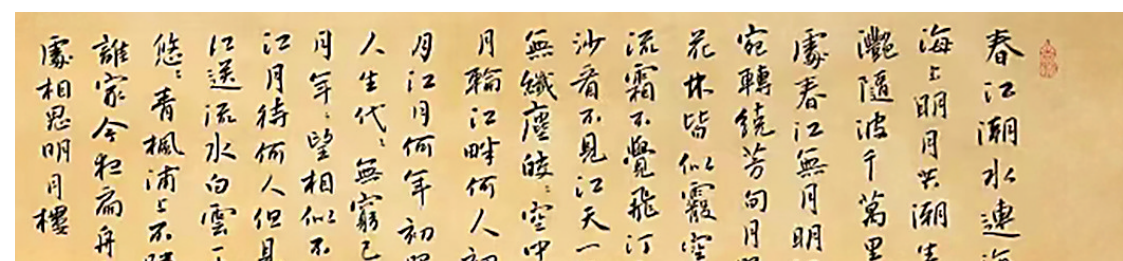 春江潮水連海
海上明月共潮生
灧隨波千萬里
處春江無月明
宛轉繞芳甸月
花林皆似霰空
流霜不覺飛汀
沙看不見江天一
無纖塵皎〻空中
月輪江畔何人初
月江月何年初
人生代〻無窮已
月年〻望相似不
江月待何人但見
江送流水白雲一
悠〻青楓浦上不勝
誰家今夜扁舟
處相思明月樓